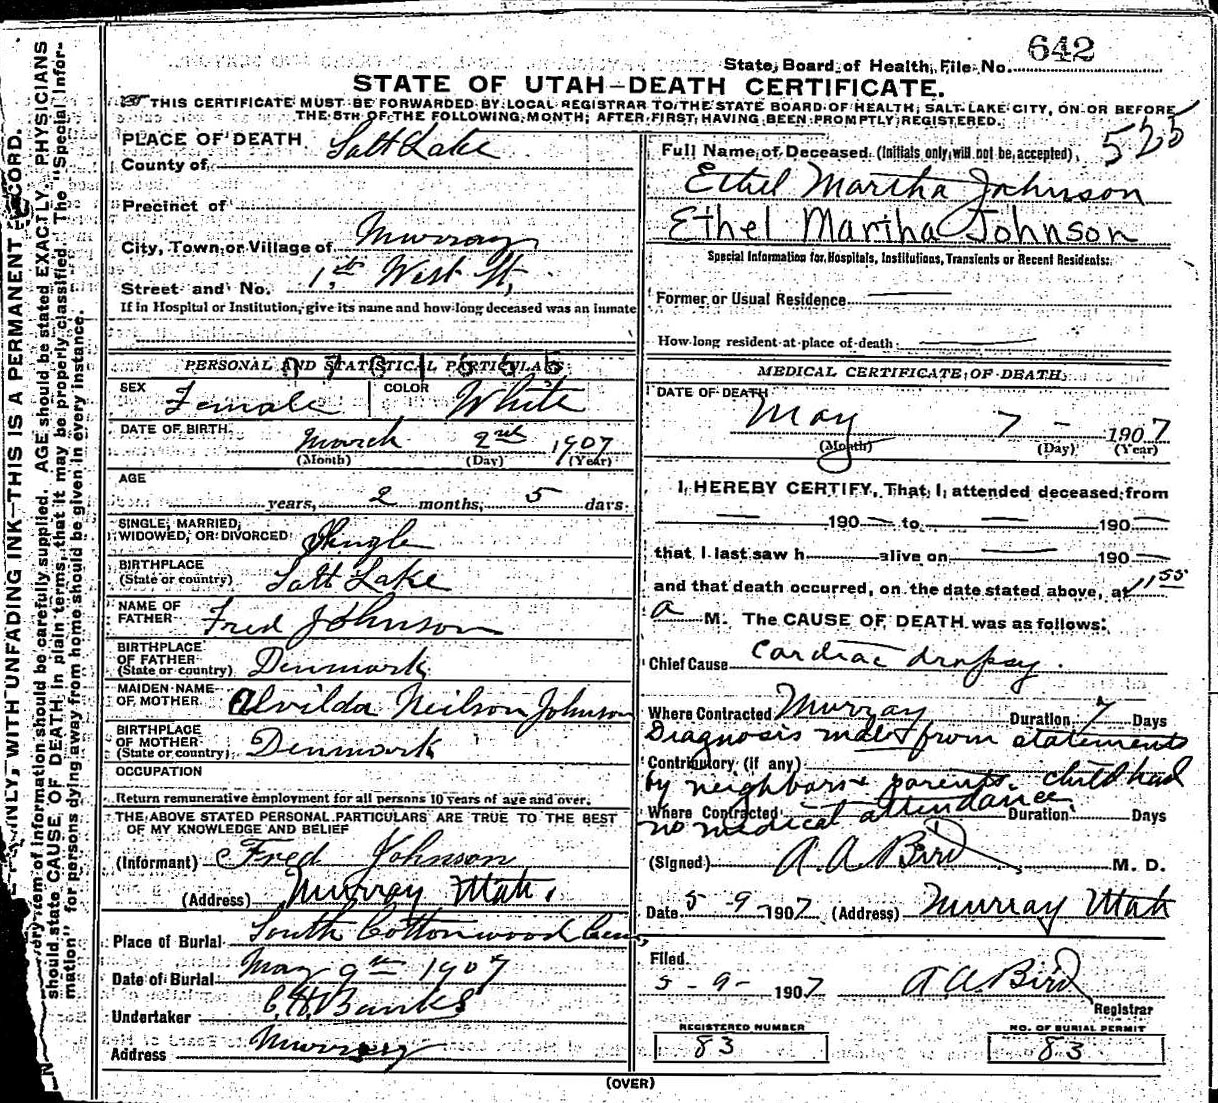 642
State Board of Health, File No.
STATE OF UTAH—DEATH CERTIFICATE.
THIS CERTIFICATE MUST BE FORWARDED BY LOCAL REGISTRAR TO THE STATE BOARD OF HEALTH, SALT LAKE CITY, ON OR BEFORE
THE 5TH OF THE FOLLOWING MONTH, AFTER FIRST HAVING BEEN PROMPTLY REGISTERED.
525
PLACE OF DEATH
County of Salt Lake
Precinct of
City, Town or Village of Murray
Street and No. 1st West St,
If in Hospital or Institution, give its name and how long deceased was an inmate
PERSONAL AND STATISTICAL PARTICULARS
SEX Female COLOR White
DATE OF BIRTH March 2nd 1907
(Month) (Day) (Year)
AGE
years, 2 months, 5 days.
SINGLE, MARRIED,
WIDOWED, OR DIVORCED Single
BIRTHPLACE
(State or country) Salt Lake
NAME OF
FATHER Fred Johnson
BIRTHPLACE
OF FATHER
(State or country) Denmark
MAIDEN NAME
OF MOTHER Alvilda Neilson Johnson
BIRTHPLACE
OF MOTHER
(State or country) Denmark
OCCUPATION
Return remunerative employment for all persons 10 years of age and over.
THE ABOVE STATED PERSONAL PARTICULARS ARE TRUE TO THE BEST
OF MY KNOWLEDGE AND BELIEF
(Informant) Fred Johnson
(Address) Murray Utah.
Place of Burial South Cottonwood Cem
Date of Burial May 9th 1907
Undertaker C H Banks
Address Murray
Full Name of Deceased (Initials only will not be accepted),
Ethel Martha Johnson
Ethel Martha Johnson
Special Information for Hospitals, Institutions, Transients or Recent Residents:
Former or Usual Residence
How long resident at place of death
MEDICAL CERTIFICATE OF DEATH
DATE OF DEATH
May 7 - 1907
(Month) (Day) (Year)
I HEREBY CERTIFY, That I attended deceased from
— 190— to — 190—
that I last saw h alive on — 190—
and that death occurred, on the date stated above, at 11 55
a M. The CAUSE OF DEATH was as follows:
Chief Cause Cardiac dropsy.
Where Contracted Murray Duration 7 Days
Diagnosis made from statements
Contributory (if any)
by neighbors & parents. child had
Where Contracted Duration Days
no medical attendance.
(Signed) A A Bird M. D.
Date 5-9-1907 (Address) Murray Utah
Filed.
5-9-1907 A A Bird
Registrar
REGISTERED NUMBER
83
NO. OF BURIAL PERMIT
83
(OVER)
ONLY, WITH UNFADING INK—THIS IS A PERMANENT RECORD.
every item of information should be carefully supplied. AGE should be stated EXACTLY. PHYSICIANS
should state CAUSE OF DEATH in plain terms, that it may be properly classified. The "Special Infor-
mation" for persons dying away from home should be given in every instance.